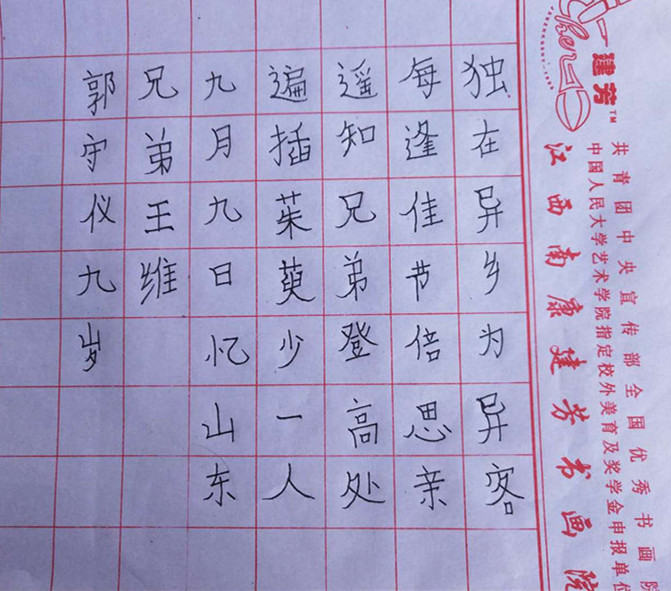 建芳™
江西南康建芳书画院
共青团中央宣传部全国优秀书画院
中国人民大学艺术学院指定校外美育及奖学金申报单位
独在异乡为异客
每逢佳节倍思亲
遥知兄弟登高处
遍插茱萸少一人
九月九日忆山东
兄弟王维
郭守仪九岁